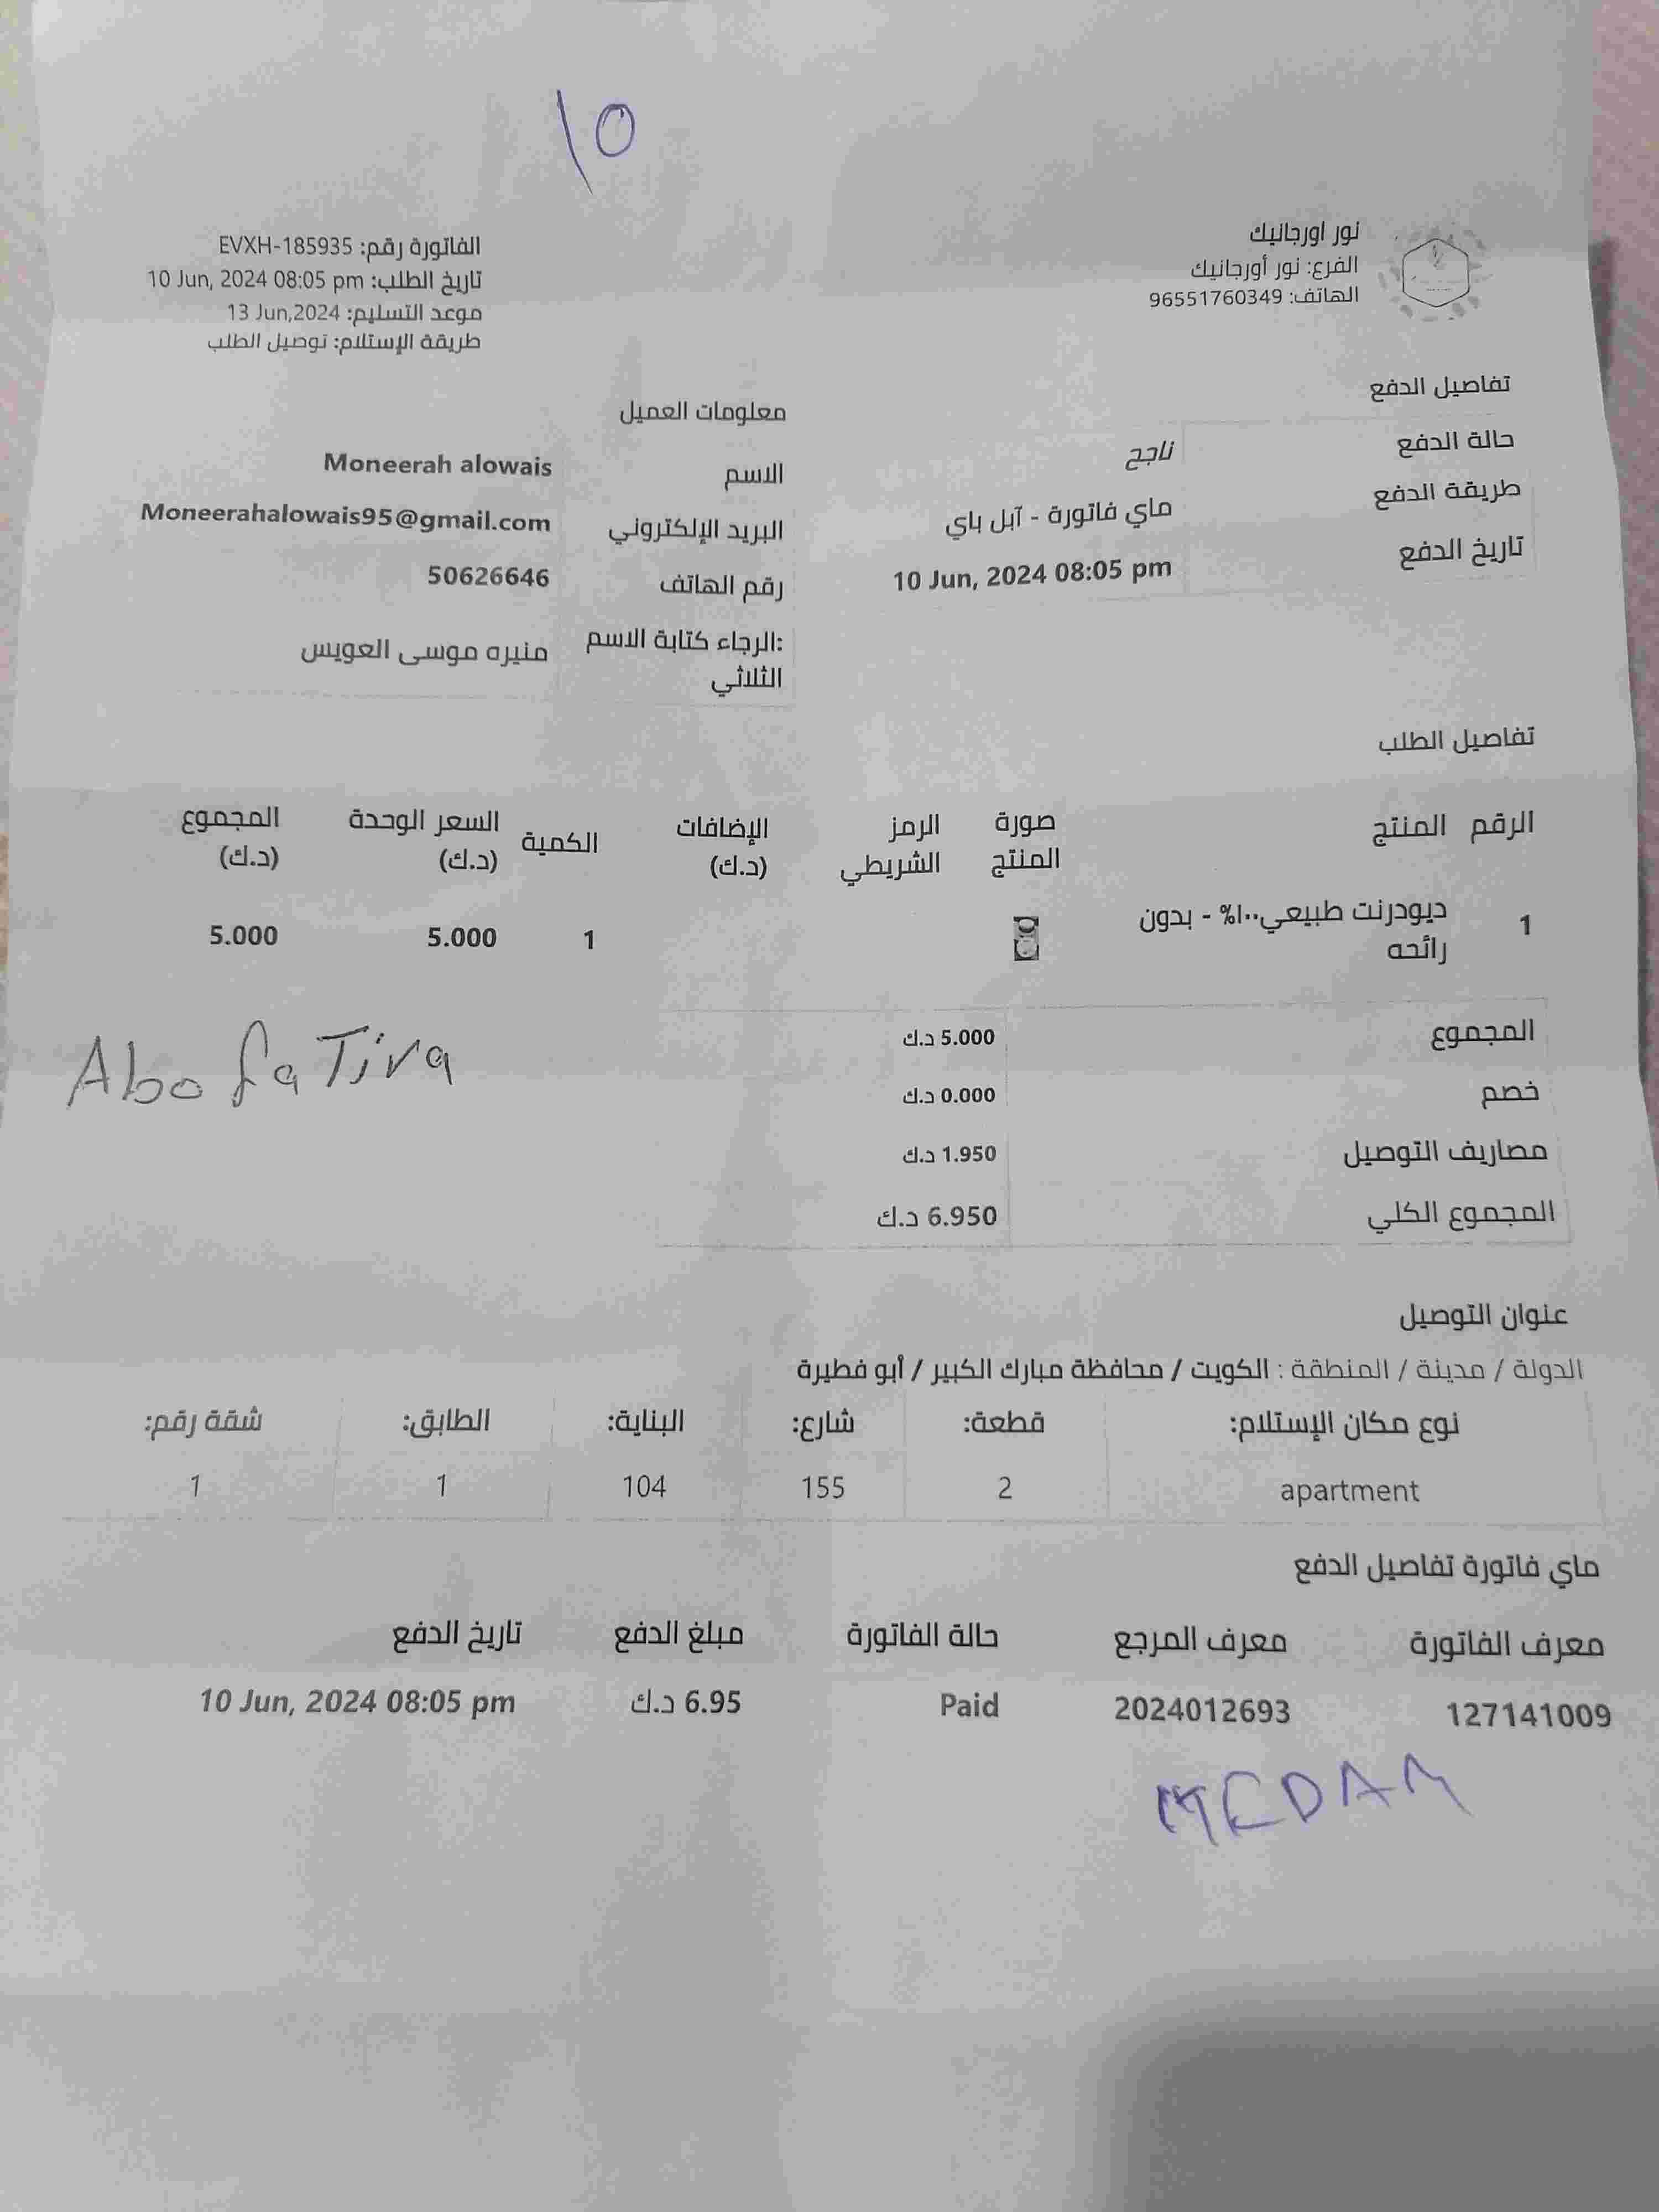 10
نور اورجانيك
الفرع: نور أورجانيك
الهاتف: 96551760349
الفاتورة رقم: EVXH-185935
تاريخ الطلب: 10 Jun, 2024 08:05 pm
موعد التسليم: 13 Jun,2024
طريقة الإستلام: توصيل الطلب
تفاصيل الدفع
حالة الدفع ناجح
طريقة الدفع ماي فاتورة - آبل باي
تاريخ الدفع 10 Jun, 2024 08:05 pm
معلومات العميل
الاسم Moneerah alowais
البريد الإلكتروني Moneerahalowais95@gmail.com
رقم الهاتف 50626646
:الرجاء كتابة الاسم منيره موسى العويس
الثلاثي
تفاصيل الطلب
الرقم المنتج صورة الرمز الإضافات الكمية السعر الوحدة المجموع
المنتج الشريطي (د.ك) (د.ك) (د.ك)
1 ديودرنت طبيعي١٠٠% - بدون 1 5.000 5.000
رائحه
المجموع 5.000 د.ك
Abo faTira
خصم 0.000 د.ك
مصاريف التوصيل 1.950 د.ك
المجموع الكلي 6.950 د.ك
عنوان التوصيل
الدولة / مدينة / المنطقة : الكويت / محافظة مبارك الكبير / أبو فطيرة
نوع مكان الإستلام: قطعة: شارع: البناية: الطابق: شقة رقم:
apartment 2 155 104 1 1
ماي فاتورة تفاصيل الدفع
معرف الفاتورة معرف المرجع حالة الفاتورة مبلغ الدفع تاريخ الدفع
127141009 2024012693 Paid 6.95 د.ك 10 Jun, 2024 08:05 pm
MEDAM